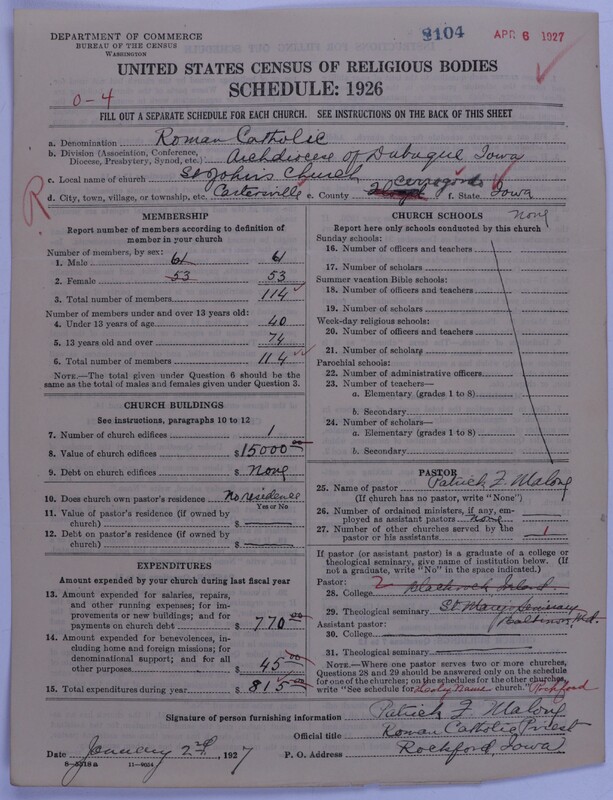 DEPARTMENT OF COMMERCE
BUREAU OF THE CENSUS
WASHINGTON
9104
APR 6 1927
UNITED STATES CENSUS OF RELIGIOUS BODIES
SCHEDULE: 1926
0-4
FILL OUT A SEPARATE SCHEDULE FOR EACH CHURCH. SEE INSTRUCTIONS ON THE BACK OF THIS SHEET
a. Denomination Roman Catholic
b. Division (Association, Conference, Diocese, Presbytery, Synod, etc.) Archdiocese of Dubuque Iowa
c. Local name of church St John's Church
d. City, town, village, or township, etc. Cartersville e. County Cerrogordo f. State Iowa
R
MEMBERSHIP
Report number of members according to definition of member in your church
Number of members, by sex:
1. Male 61 61
2. Female 53 53
3. Total number of members 114
Number of members under and over 13 years old:
4. Under 13 years of age 40
5. 13 years old and over 74
6. Total number of members 114
NOTE.—The total given under Question 6 should be the same as the total of males and females given under Question 3.
CHURCH BUILDINGS
See instructions, paragraphs 10 to 12
7. Number of church edifices 1
8. Value of church edifices $15000 00
9. Debt on church edifices $ None
10. Does church own pastor's residence No residence
Yes or No
11. Value of pastor's residence (if owned by church) $
12. Debt on pastor's residence (if owned by church) $
EXPENDITURES
Amount expended by your church during last fiscal year
13. Amount expended for salaries, repairs, and other running expenses; for improvements or new buildings; and for payments on church debt $ 770 00
14. Amount expended for benevolences, including home and foreign missions; for denominational support; and for all other purposes $ 45 00
15. Total expenditures during year $ 815 00
CHURCH SCHOOLS none
Report here only schools conducted by this church
Sunday schools:
16. Number of officers and teachers
17. Number of scholars
Summer vacation Bible schools:
18. Number of officers and teachers
19. Number of scholars
Week-day religious schools:
20. Number of officers and teachers
21. Number of scholars
Parochial schools:
22. Number of administrative officers
23. Number of teachers—
a. Elementary (grades 1 to 8)
b. Secondary
24. Number of scholars—
a. Elementary (grades 1 to 8)
b. Secondary
PASTOR
25. Name of pastor Patrick F. Malong
(If church has no pastor, write "None")
26. Number of ordained ministers, if any, employed as assistant pastors none
27. Number of other churches served by the pastor or his assistants 1
If pastor (or assistant pastor) is a graduate of a college or theological seminary, give name of institution below. (If not a graduate, write "No" in the space indicated.)
Pastor: 2
28. College Blackrock Ireland
29. Theological seminary St. Marys Seminary Baltimore, Md.
Assistant pastor:
30. College
31. Theological seminary
NOTE.—Where one pastor serves two or more churches, Questions 28 and 29 should be answered only on the schedule for one of the churches; on the schedules for the other churches, write "See schedule for Holy Name church." Rockford
Signature of person furnishing information Patrick F. Malong
Official title Roman Catholic Priest
Date January 2nd, 1927 P. O. Address Rockford, Iowa
8-5318a 11-9024